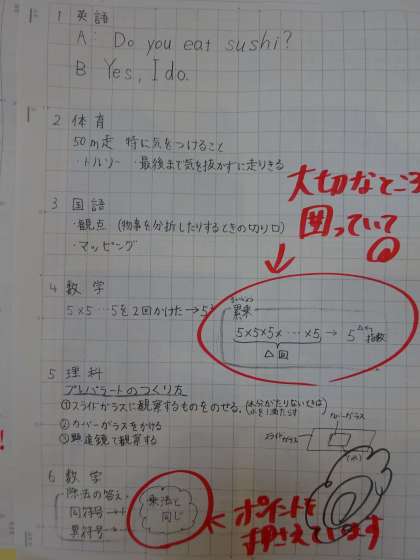 1 英語
A: Do you eat sushi?
B Yes, I do.
2 体育
50m走 特に気をつけること
・最後まで気を抜かずに走りきる
大切なところ
囲っていて
3 国語
・観点 (物事を分析したりするときの切り口)
・マッピング
4 数学
5×5…5を2回かけた→5²
累乗
5×5×5×…×5 → 5
指数
△回
5 理科
プレパラートのつくり方
①スライドガラスに観察するものをのせる。(水分がたりないときは水を1滴たらす
②カバーガラスをかける
③顕微鏡で観察する
カバーガラス
スライドガラス
(水)
6 数学
除法の答え
同符号→+
異符号→-
乗法と同じ
ポイントを
押さえています